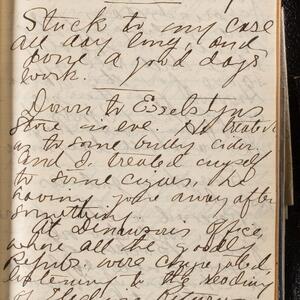 Stuck to my case
all day long, and
done a good days
work.
Down to Esselstyns
store in eve. He treated
us to some bully cider.
And I treated myself
to some cigars, he
having gone away after
something.
At Dinsmore's office,
where all the goodly
Repub. were congregated,
listening to the reading
of Election Returns